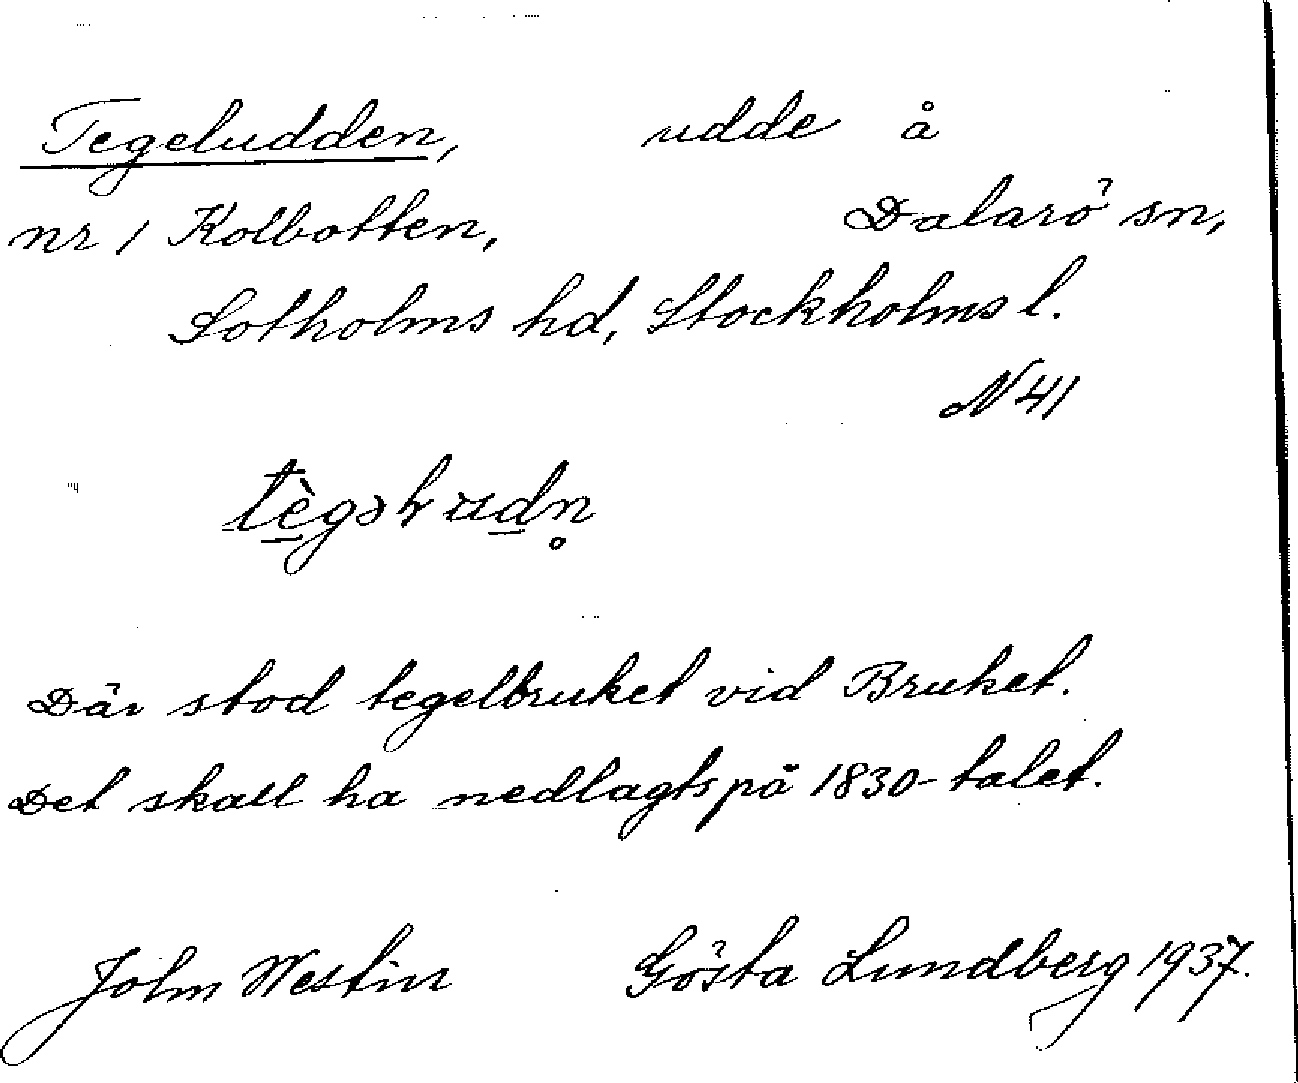 Tegeludden, udde å
nr 1 Kolbotten, Dalarö sn,
Sotholms hd, Stockholms l.
N 41
Där stod tegelbruket vid Bruket.
Det skall ha nedlagts på 1830-talet.
John Westin Gösta Lundberg 1937.